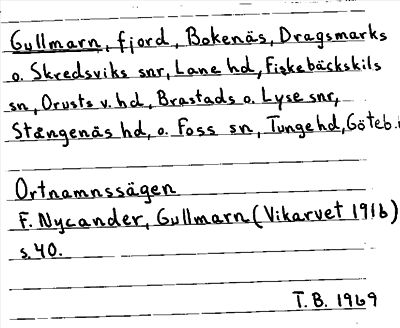 Gullmarn, fjord, Bokenäs, Dragsmarks
o. Skredsviks snr, Lane hd, Fiskebäckskils
sn, Orusts v. hd, Brastads o. Lyse snr,
Stångenäs hd, o. Foss sn, Tunge hd, Göteb.
Ortnamnssägen
F. Nycander, Gullmarn (Vikarvet 1916)
s. 40.
T. B. 1969